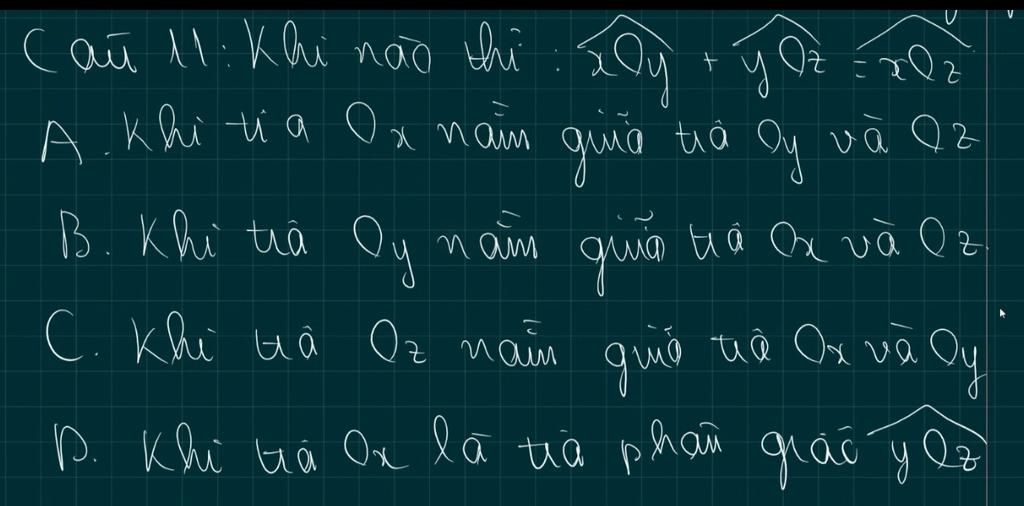 Câu 11: Khi nào thì: xOy + yOz = xOz
A. Khi tia Ox nằm giữa tia Oy và Oz
B. Khi tia Oy nằm giữa tia Ox và Oz.
C. Khi tia Oz nằm giữa tia Ox và Oy
D. Khi tia Ox là tia phân giác yOz